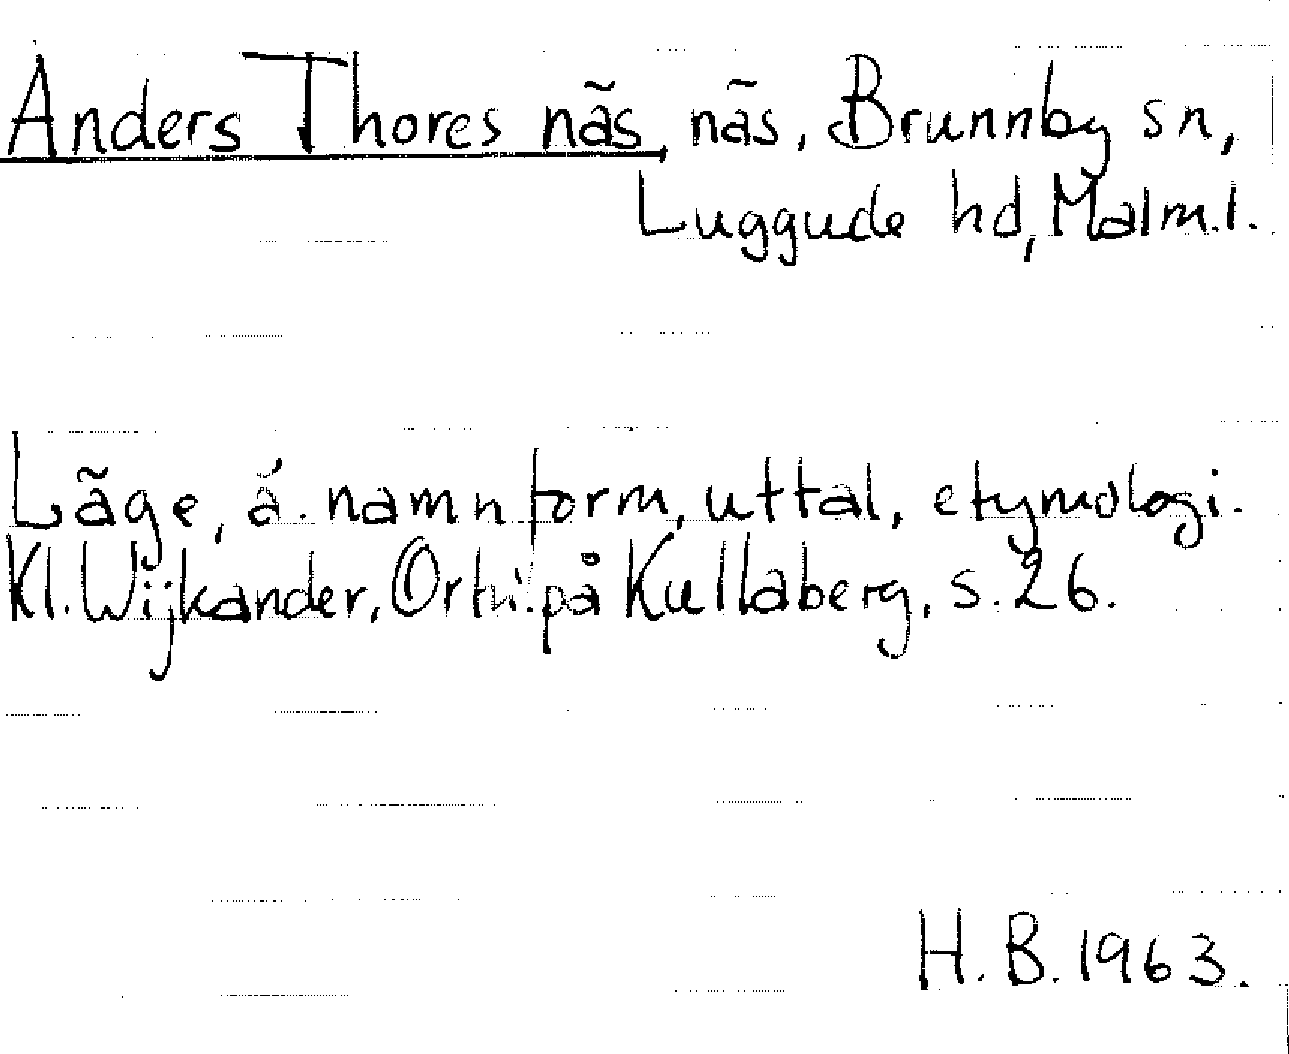 Anders Thores näs, näs, Brunnby sn,
Luggude hd, Malm.l.
Läge, ä. namnform, uttal, etymologi.
Kl. Wijkander, Ortn. på Kullaberg, s. 26.
H. B. 1963.